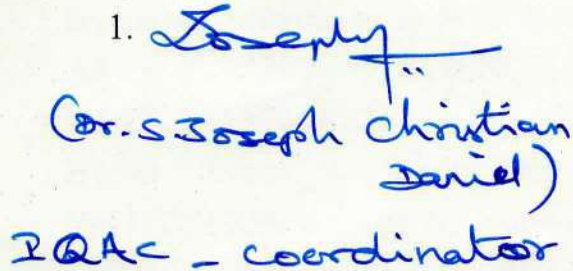 1. Joseph
(Dr. S. Joseph Christian
Daniel)
IQAC - coordinator